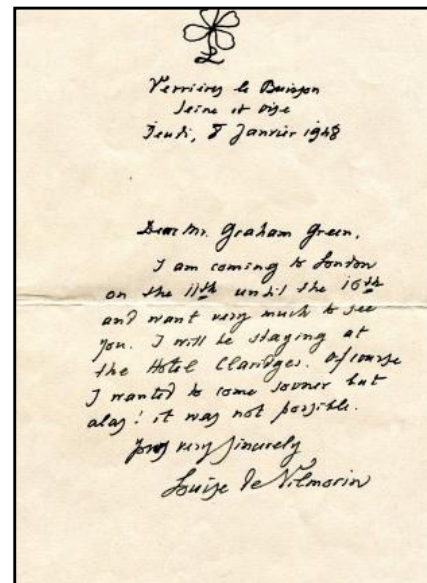 L
Verrières le Buisson
Seine et Oise
Jeudi, 8 Janvier 1948
Dear Mr. Graham Green,
I am coming to London
on the 11th until the 16th
and want very much to see
you. I will be staying at
the Hotel Claridges. Of course
I wanted to come sooner but
alas! it was not possible.
yours very sincerely
Louise de Vilmorin